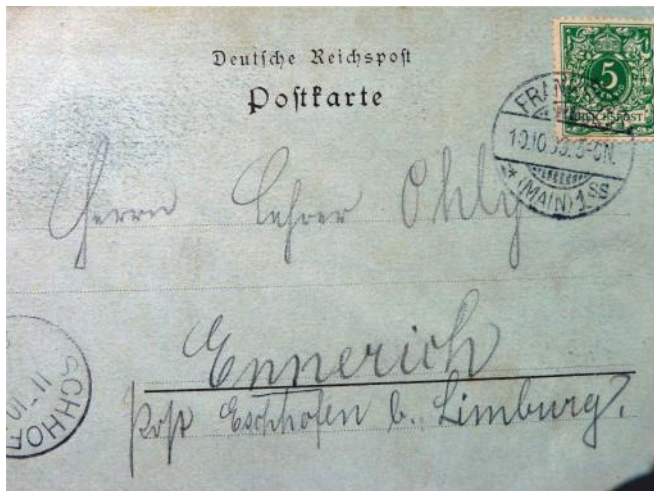 Deutsche Reichspost
Postkarte
5
REICHSPOST
FRANKF
10.10.99. 5-6N.
* (MAIN) 1 SS
Herrn Lehrer Ohly
Ennerich
Post Eschhofen b. Limburg.
CHHOF
11 10